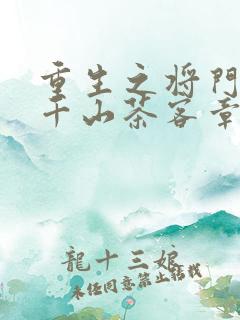 重生之将門
千山茶客章
龍十三娘
未经同意禁止转载